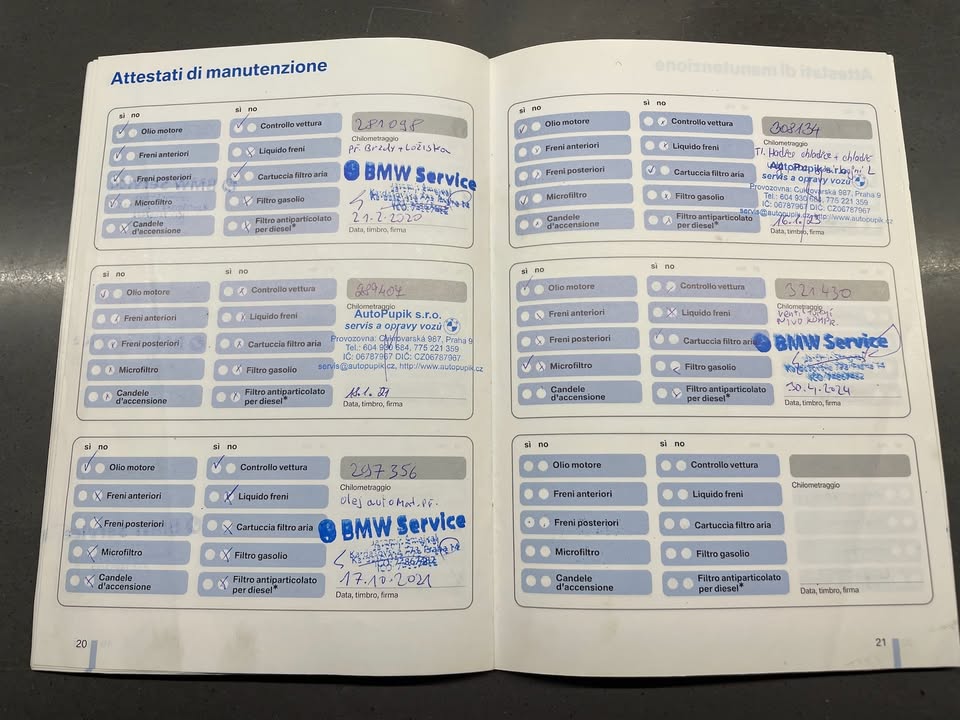 Attestati di manutenzione
sì no sì no
Olio motore Controllo vettura 281098
Chilometraggio
Freni anteriori Liquido freni
Freni posteriori Cartuccia filtro aria BMW Service
Microfiltro Filtro gasolio
Candele d'accensione Filtro antiparticolato per diesel*
21.2.2020
Data, timbro, firma
sì no sì no
Olio motore Controllo vettura 289404
Chilometraggio
Freni anteriori Liquido freni AutoPupik s.r.o.
servis a opravy vozů
Freni posteriori Cartuccia filtro aria Provozovna: Cukrovarská 987, Praha 9
Tel.: 604 930 684, 775 221 359
IČ: 06787967 DIČ: CZ06787967
Microfiltro Filtro gasolio servis@autopupik.cz, http://www.autopupik.cz
Candele d'accensione Filtro antiparticolato per diesel*
Data, timbro, firma
sì no sì no
Olio motore Controllo vettura 297356
Chilometraggio
Freni anteriori Liquido freni olej automat. př.
Freni posteriori Cartuccia filtro aria BMW Service
Microfiltro Filtro gasolio
Candele d'accensione Filtro antiparticolato per diesel*
17.10.2021
Data, timbro, firma
20
sì no sì no
Olio motore Controllo vettura 308134
Chilometraggio
Freni anteriori Liquido freni
Freni posteriori Cartuccia filtro aria AutoPupik s.r.o.
servis a opravy vozů
Provozovna: Cukrovarská 987, Praha 9
Microfiltro Filtro gasolio Tel.: 604 930 684, 775 221 359
IČ: 06787967 DIČ: CZ06787967
servis@autopupik.cz, http://www.autopupik.cz
Candele d'accensione Filtro antiparticolato per diesel*
Data, timbro, firma
sì no sì no
Olio motore Controllo vettura 321430
Chilometraggio
Freni anteriori Liquido freni
Freni posteriori Cartuccia filtro aria BMW Service
Microfiltro Filtro gasolio
Candele d'accensione Filtro antiparticolato per diesel*
30.4.2024
Data, timbro, firma
sì no sì no
Olio motore Controllo vettura
Chilometraggio
Freni anteriori Liquido freni
Freni posteriori Cartuccia filtro aria
Microfiltro Filtro gasolio
Candele d'accensione Filtro antiparticolato per diesel*
Data, timbro, firma
21